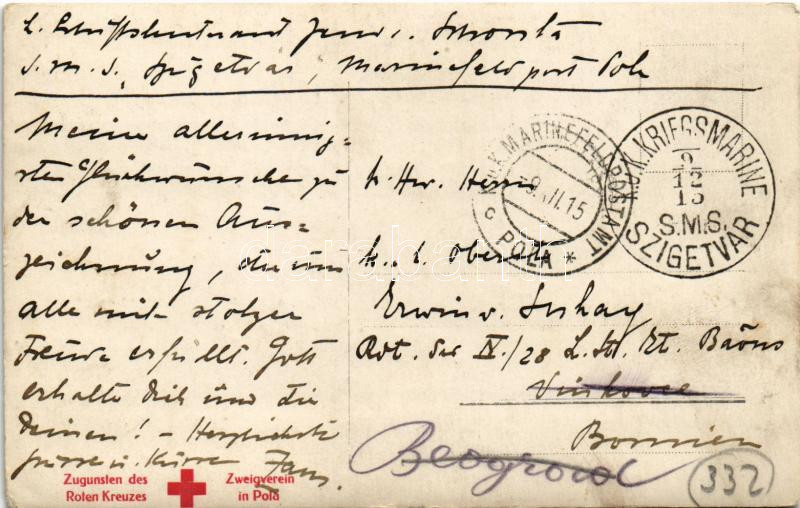 L. Schiffsleutenant
S.M.S. Szigetvar, Marinefeldpost Pola
Meine allerinnig-
sten Glückwünsche zu
der schönen Aus-
zeichnung, die uns
alle mit stolzer
Freude erfüllt. Gott
erhalte Dich und die
Deinen! – Herzlichste
Grüsse u. Küsse
K.U.K. MARINEFELDPOSTAMT
POLA
K.U.K. KRIEGSMARINE
9
12
15
S.M.S.
SZIGETVÁR
Herrn
k. k. Oberst
Erwin v.
IV./28 L. St. Et. Baons
Vinkovce
Bosnien
Beograd
332
Zugunsten des
Roten Kreuzes
Zweigverein
in Pola